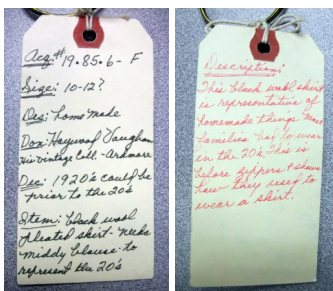 Acq.# 19.85.6- F
Size: 10-12?
Des: home made
Don: Haywood Vaughan
His Vintage Coll.- Ardmore
Dec: 1920's could be
prior to the 20's
Item: black wool
pleated skirt- needs
middy blouse- to
represent the 20's
Description:
This black wool skirt
is representative of
homemade things
families had to wear
in the 20's. This is
before zippers & shows
how they used to
wear a skirt.